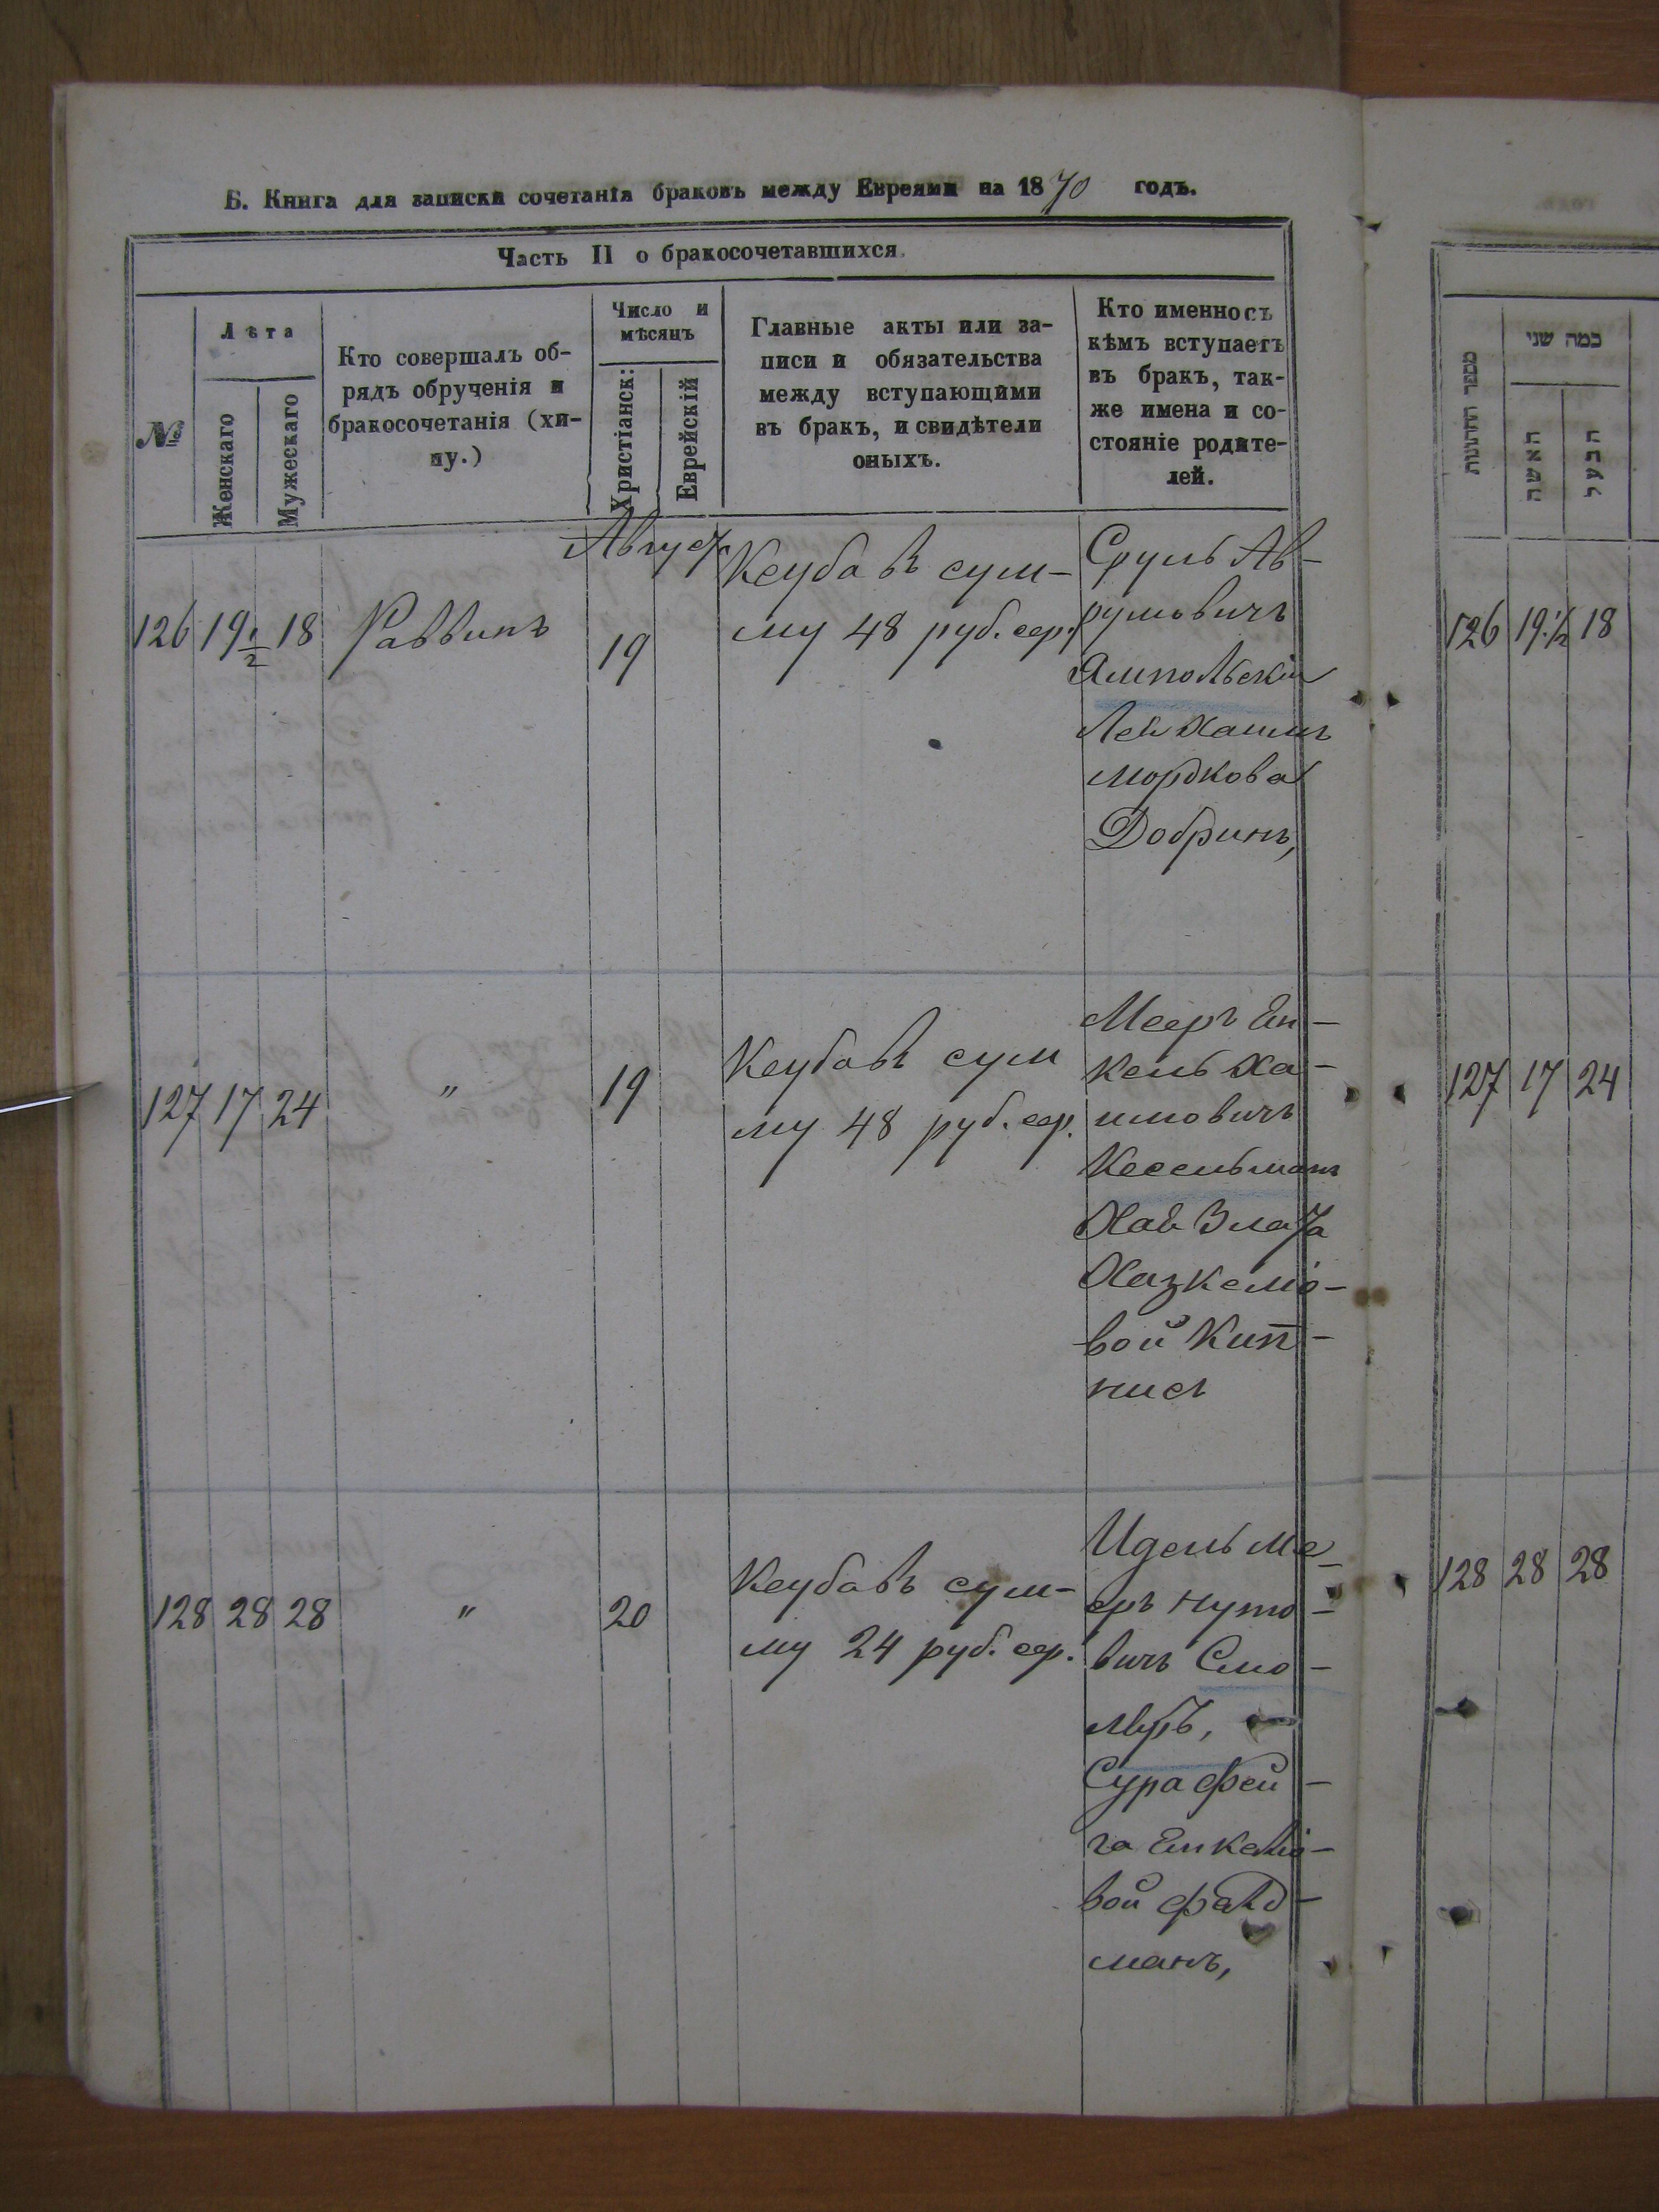 Б. Книга для записки сочетанія браковъ между Евреями на 1870 годъ.
Часть II о бракосочетавшихся.
№
Лѣта
Женскаго
Мужескаго
Кто совершалъ об-
рядъ обрученія и
бракосочетанія (хи-
пу.)
Число и
мѣсяцъ
Христіанск:
Еврейскій
Главные акты или за-
писи и обязательства
между вступающими
въ бракъ, и свидѣтели
оныхъ.
Кто именно съ
кѣмъ вступаетъ
въ бракъ, так-
же имена и со-
стояніе родите-
лей.
Август
126 19 1/2 18 Раввинъ 19
Кеуба въ сум-
му 48 руб. сер.
Сруль Ав-
румовичъ
Ямпольскій
Лея Хаимъ
Мордкова
Добринъ,
127 17 24 " 19
Кеуба въ сум
му 48 руб. сер.
Мееръ Ян-
кель Ха-
имовичъ
Кесельманъ
Хая Злата
Хазкелио-
вой Кип-
нисъ
128 28 28 " 20
Кеуба въ сум-
му 24 руб. сер.
Идель Ме-
еръ Нутo-
вичъ Смо-
Сура Фей-
га Янкелио-
вой Фалд-
манъ,
מספר החתונות
כמה שני
האשה
הבעל
126 19 1/2 18
127 17 24
128 28 28